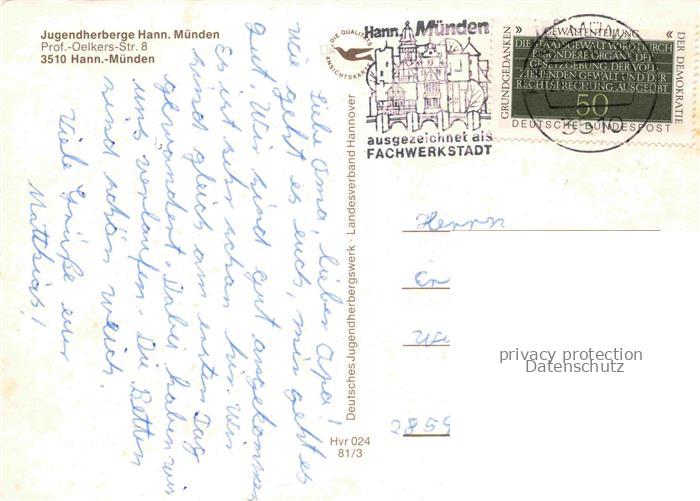 Jugendherberge Hann. Münden
Prof.-Oelkers-Str. 8
3510 Hann.-Münden
Liebe Oma, lieber Opa!
Wie geht es euch, mir geht es
gut. Wir sind gut angekommen
Es ist sehr schön hier. Wir
sind gleich am ersten Tag
gewandert. Dabei haben wir
uns verlaufen. Die Betten
sind schön weich.
Viele Grüße euer
Matthias!
DIE QUALITÄTS
ANSICHTSKARTE
Deutsches Jugendherbergswerk · Landesverband Hannover
Hvr 024
81/3
Hann. Münden
ausgezeichnet als
FACHWERKSTADT
GRUNDGEDANKEN
DER DEMOKRATIE
» GEWALTENTEILUNG «
DIE STAATSGEWALT WIRD DURCH
BESONDERE ORGANE DER
GESETZGEBUNG DER VOLL-
ZIEHENDEN GEWALT UND DER
RECHTSPRECHUNG AUSGEÜBT
50
DEUTSCHE BUNDESPOST
3510
Herrn
2859
privacy protection
Datenschutz